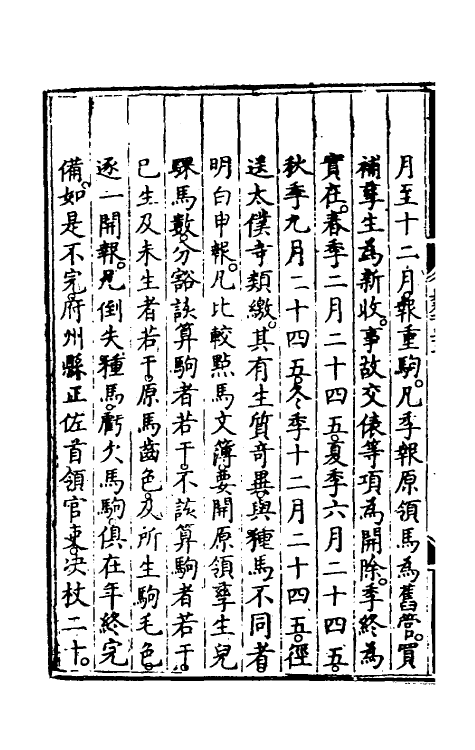 月至十二月報重駒。凡季報原領馬為舊管。買
補孳生為新收。事故交俵等項為開除。季終為
實在。春季二月二十四五。夏季六月二十四五。
秋季九月二十四五。冬季十二月二十四五。徑
送太僕寺類繳。其有生質奇異與種馬不同者
明白申報。凡比較點馬文簿。要開原領孳生兒
騍馬數。分豁該算駒者若干。不該算駒者若干。
已生及未生者若干。原馬齒色。及所生駒毛色。
逐一開報。凡倒失種馬。虧欠馬駒。俱在年終完
備。如是不完。府州縣正佐首領官吏。決杖二十。